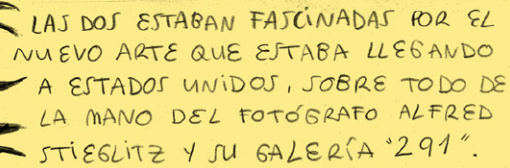 LAS DOS ESTABAN FASCINADAS POR EL
NUEVO ARTE QUE ESTABA LLEGANDO
A ESTADOS UNIDOS, SOBRE TODO DE
LA MANO DEL FOTÓGRAFO ALFRED
STIEGLITZ Y SU GALERÍA "291".